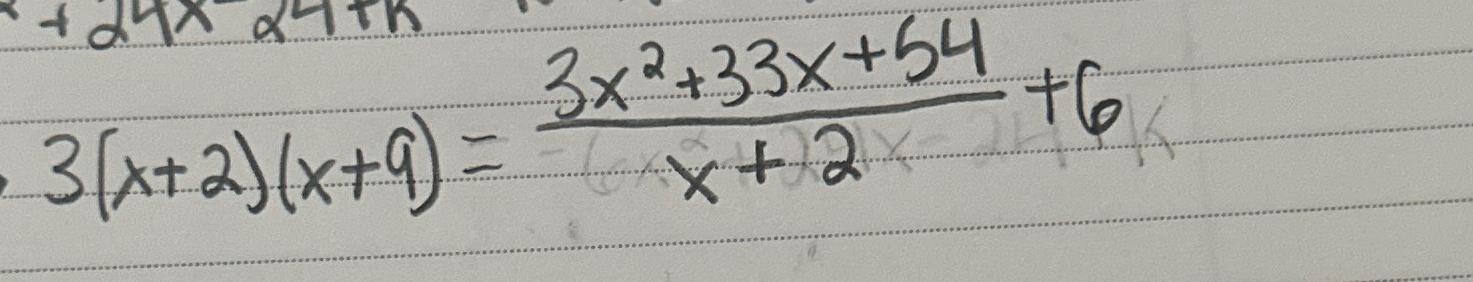 + 24x 24+k
3(x+2)(x+9) = \frac{3x^2+33x+54}{x+2} +6